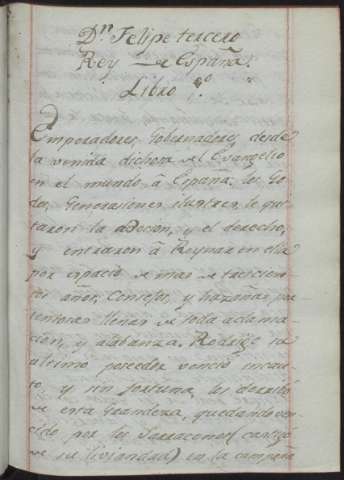 Dn Felipe tercero
Rey de España.
Libro
Emperadores, Gobernadores, desde
la venida dichosa del Evangelio
en el mundo â España; los Go-
dos, Generaciones ilustres, le qui-
taron la accion, y el derecho,
y entraron â Reynar en ella
por espacio de mas de trescien-
tos años, Consejos, y hazañas por-
tentosas llenas de toda aclama-
cion, y alabanza, Rodrigo su
ultimo poseedor vencio incau-
to, y sin fortuna, los derribó
de esta Grandeza, quedando ven-
cido por los Sarracenos (castigo
de su liviandad) en la campaña